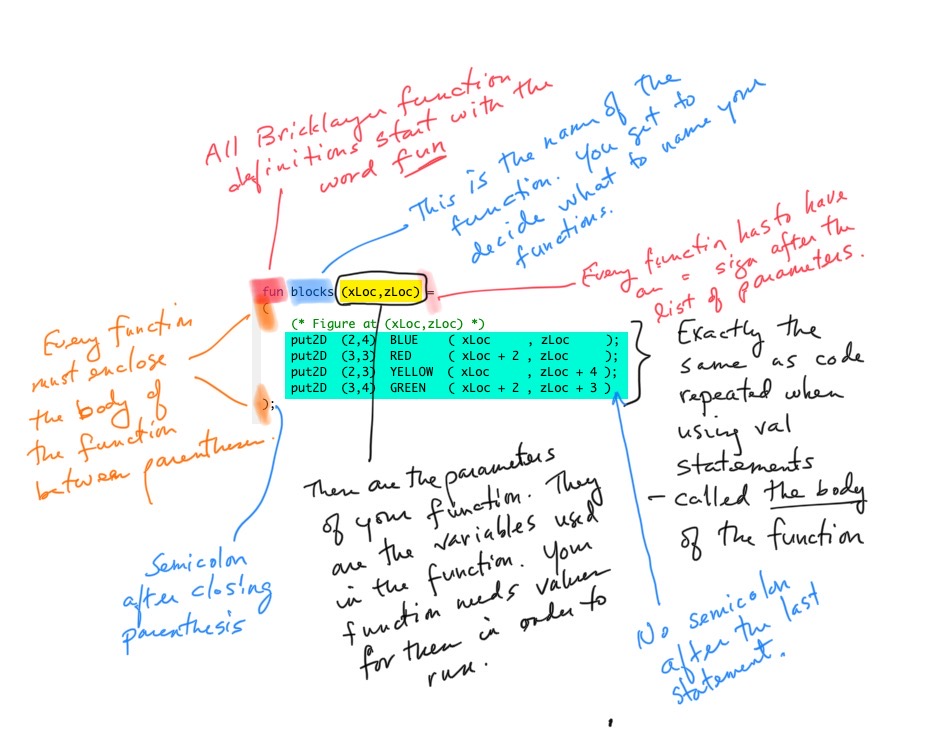 All Bricklayer function
definitions start with the
word fun
This is the name of the
function. You get to
decide what to name your
functions.
Every function has to have
an = sign after the
list of parameters.
fun blocks (xLoc,zLoc) =
(
(* Figure at (xLoc,zLoc) *)
put2D (2,4) BLUE ( xLoc , zLoc );
put2D (3,3) RED ( xLoc + 2 , zLoc );
put2D (2,3) YELLOW ( xLoc , zLoc + 4 );
put2D (3,4) GREEN ( xLoc + 2 , zLoc + 3 )
);
Every function
must enclose
the body of
the function
between parentheses.
Exactly the
same as code
repeated when
using val
statements
- called the body
of the function
These are the parameters
of your function. They
are the variables used
in the function. Your
function needs values
for them in order to
run.
Semicolon
after closing
parenthesis
No semicolon
after the last
statement.